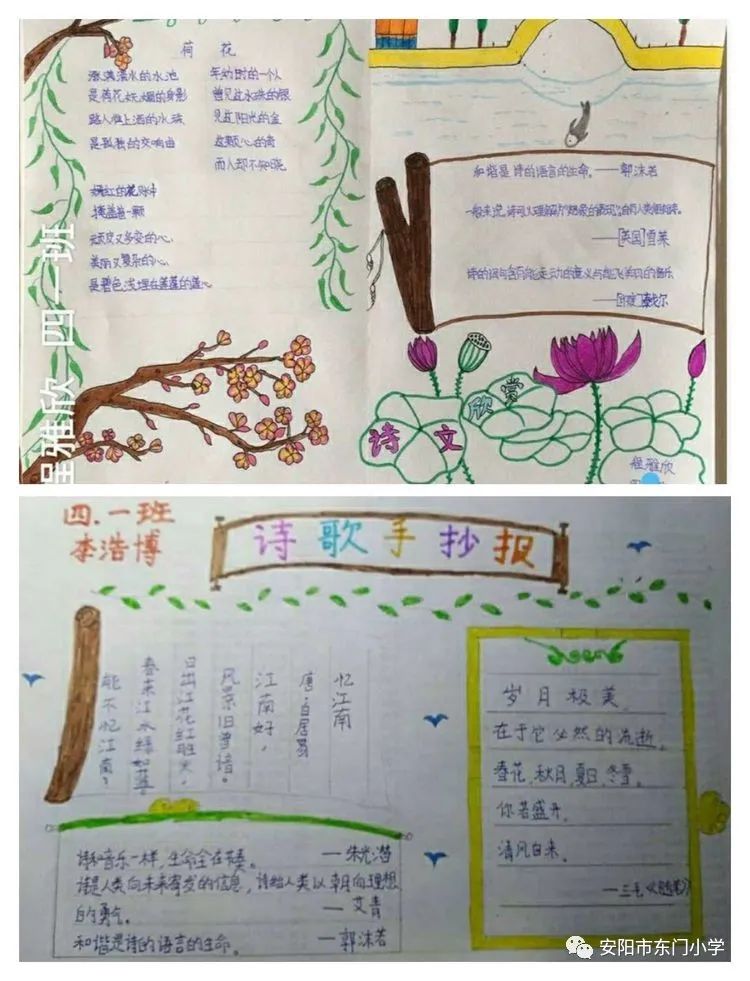 荷 花
涨满清水的水池
是荷花妖媚的身影
路人撒上洒的水珠
是孤独的交响曲
嫣红的花
掩盖着一颗
顽皮又多变的心
美丽又复杂的心
年幼时的一个人
曾见过水珠的银
见过阳光的金
这颗心的秀
而人却不知晓
和谐是诗的语言的生命。——郭沫若
——[英国]雪莱
诗的词句含有能走动的意义与能飞
——[印度]泰戈尔
诗 文 欣 赏
程雅欣
程雅欣 四 一班
四.一班
李浩博
诗歌手抄报
忆江南
唐·白居易
江南好,
风景旧曾谙。
日出江花红胜火,
春来江水绿如蓝。
能不忆江南?
诗和音乐一样,生命全在节奏。
——朱光潜
诗是人类向未来寄发的信息,诗给人类以朝向理想
的勇气。 ——艾青
和谐是诗的语言的生命。 ——郭沫若
岁月极美,
在于它必然的流逝。
春花,秋月,夏日,冬雪。
你若盛开,
清风自来。
——三毛《随笔》
安阳市东门小学